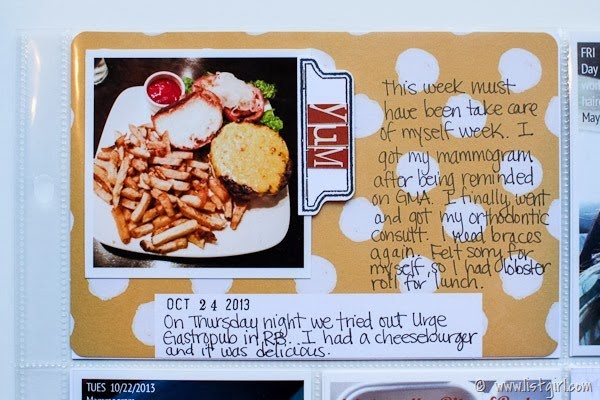 YuM
this week must
have been take care
of myself week. I
got my mammogram
after being reminded
on GMA. I finally went
and got my orthodontic
consult. I need braces
again. Felt sorry for
myself, so I had lobster
roll for lunch.
OCT 24 2013
On Thursday night we tried out Urge
Gastropub in RB. I had a cheeseburger
and it was delicious.
FRI
Day
wom
haire
May
TUES 10/22/2013
Mammogram
© www.listgirl.com